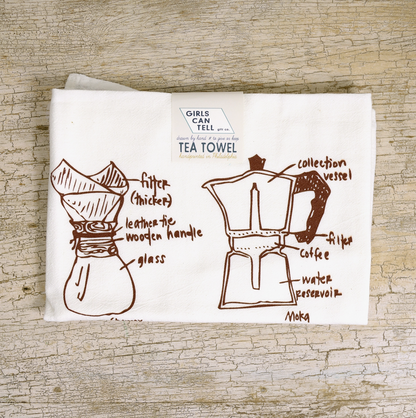 GIRLS
CAN
TELL
TEA TOWEL
handprinted in Philadelphia
filter
(thicker)
leather tie
wooden handle
glass
collection
vessel
filter
coffee
water
reservoir
Moka